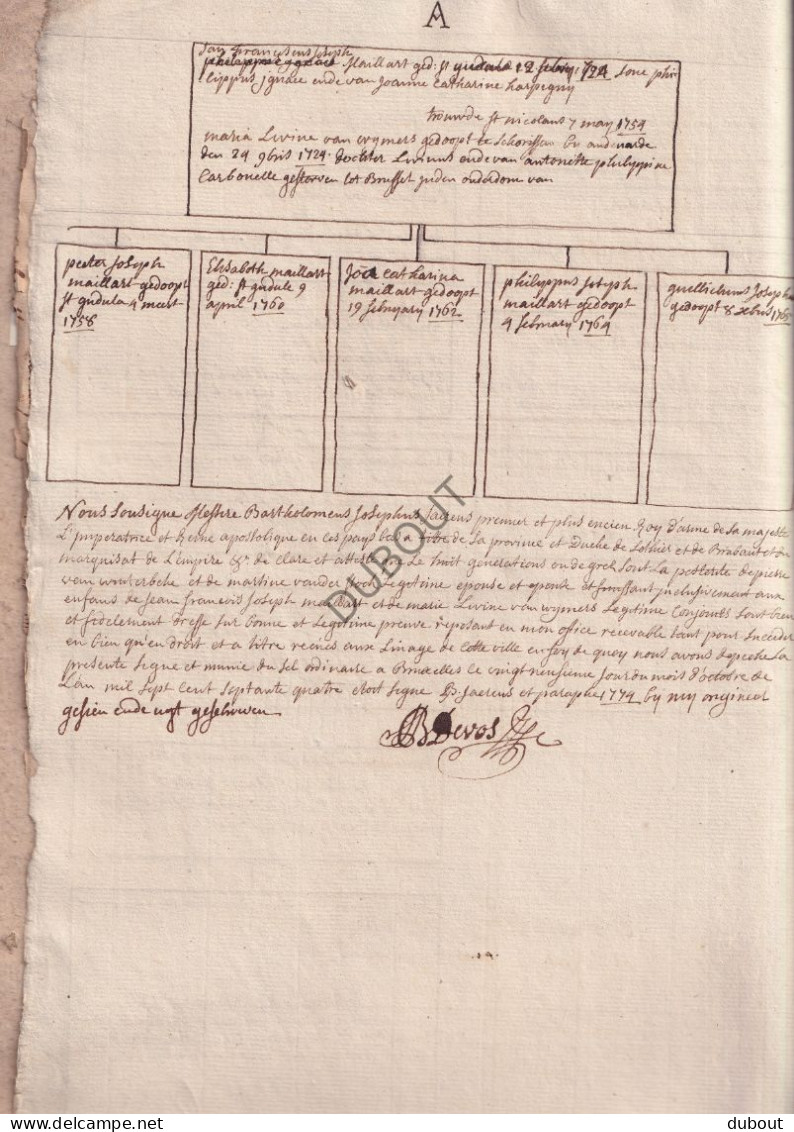 A
Jan Fransens Joseph
Maillart ged: st gudula 12 febry 1724 sone phi
lippus jgnace ende van joanne Catharine harpigny
trouwde st nicolaus 7 may 1754
maria Livine van wymers gedoopt te schorissen by audenarde
den 24 9bris 1724 dochter Livinus ende van antonette philippine
Carbonelle gestorven tot Brussel
peeter Joseph
maillart gedoopt
st gudula 4 meert
1758
Elisabeth maillart
ged: st gudule 9
april 1760
Joa Catharina
maillart gedoopt
19 february 1762
philippus Joseph
maillart gedoopt
4 february 1764
guellielmus Joseph
gedoopt 8 xbris
Nous sousigne Messire Bartholomeus Josephus Jaerens premier et plus encien Roy d'arme de sa majeste
L'imperatrice et Reine apostolique en ces pays bas a titre de la province et Duche de Lothier et de Brabant et du
marquisat de L'empire &r de clare et atteste que Le huit generations onde grez sont La posterite de pierre
van winterbeke et de martine vander Legitime epouse et inclusivement aux
enfans de Jean francois Joseph maillart et de marie Livine van wymers Legitime Conjoints sont bien
et fidelement dresse sur bonne et Legitime preuve reposant en mon office recevable tant pour succeder
en bien qu'en droit et a titre aux Linage de Cette ville en foy de quoy nous avons depeche La
presente signe et munie du sel ordinaire a Bruxelles le vingt neusieme Jour du mois d'octobre de
L'an mil sept Cent septante quatre etoit signe B. Jaerens et paraphe 1774 by my origineel
gesien ende
B Devos
DUBOUT
dubout
dubout.com